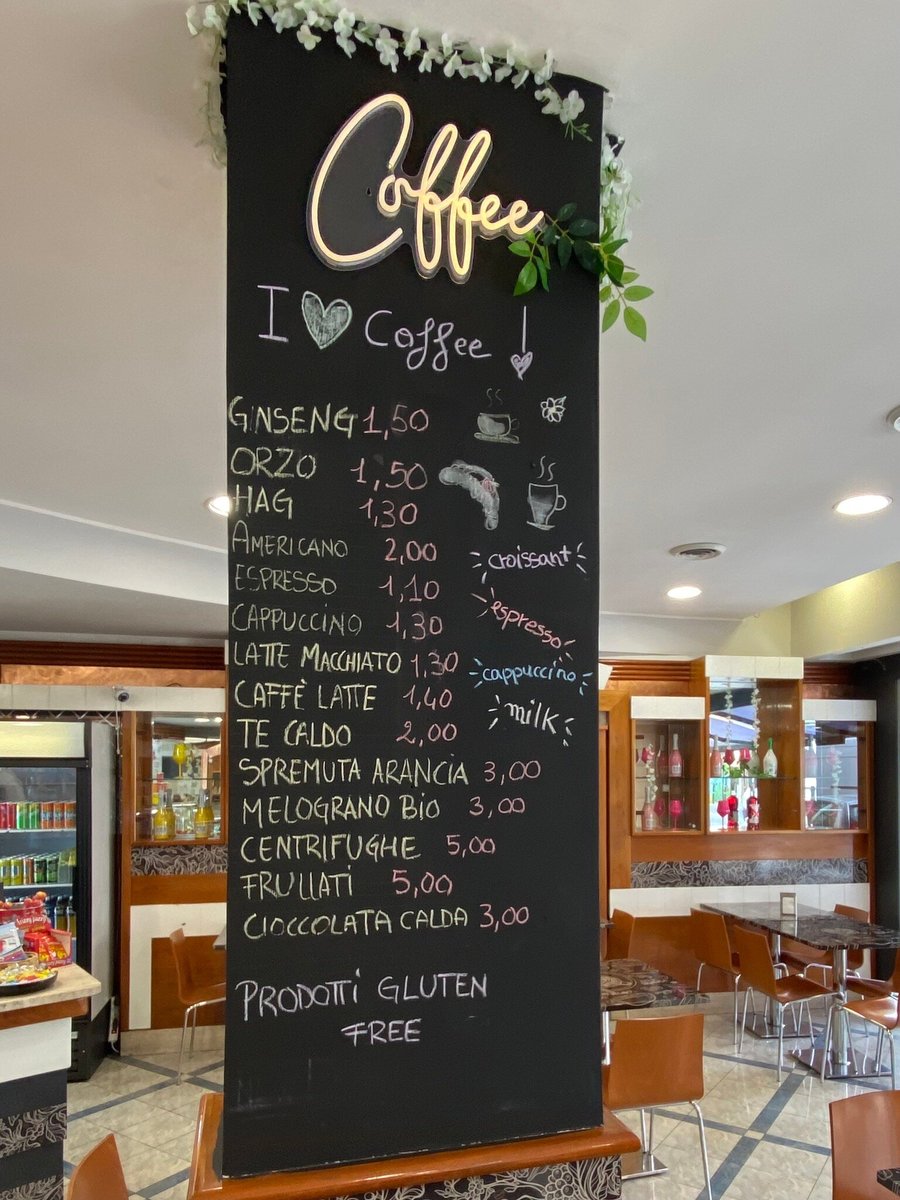 Coffee
I Coffee
GINSENG 1,50
ORZO 1,50
HAG 1,30
AMERICANO 2,00
ESPRESSO 1,10
CAPPUCCINO 1,30
LATTE MACCHIATO 1,30
CAFFÈ LATTE 1,40
TE CALDO 2,00
SPREMUTA ARANCIA 3,00
MELOGRANO BIO 3,00
CENTRIFUGHE 5,00
FRULLATI 5,00
CIOCCOLATA CALDA 3,00
croissant
espresso
cappuccino
milk
PRODOTTI GLUTEN
FREE